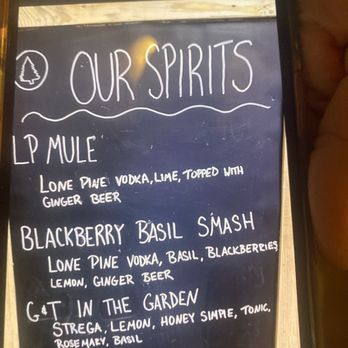 OUR SPIRITS
LP MULE
LONE PINE VODKA, LIME, TOPPED WITH
GINGER BEER
BLACKBERRY BASIL SMASH
LONE PINE VODKA, BASIL, BLACKBERRIES,
LEMON, GINGER BEER
G&T IN THE GARDEN
STREGA, LEMON, HONEY SIMPLE, TONIC,
ROSEMARY, BASIL